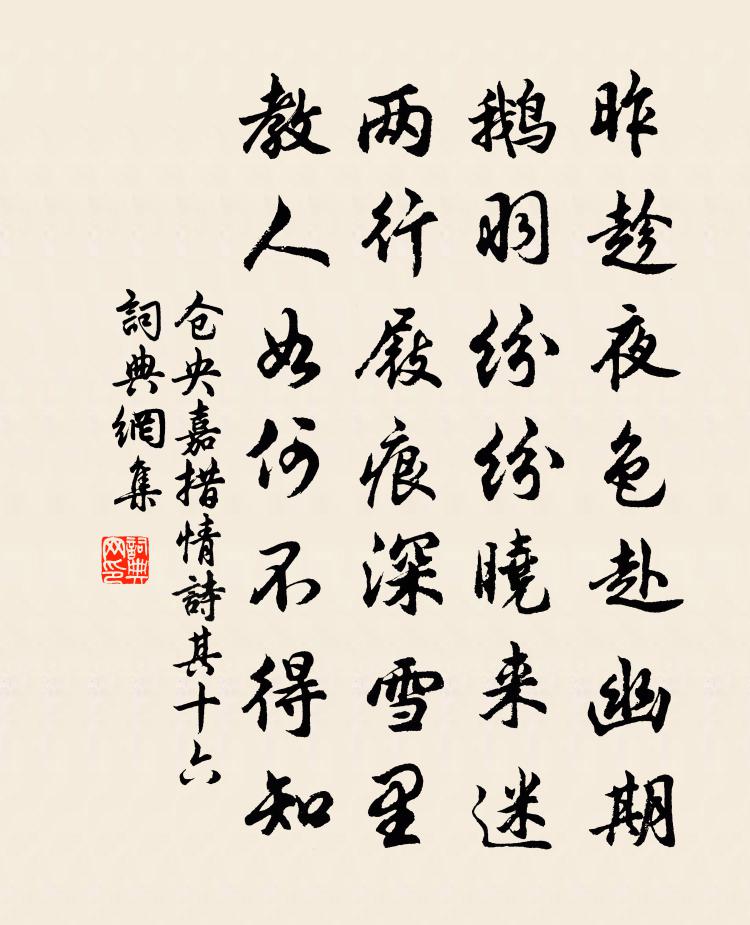 昨趁夜色赴幽期
鹅羽纷纷晓来迷
两行屐痕深雪里
教人如何不得知
仓央嘉措情诗其十六
词典网集
词典网印